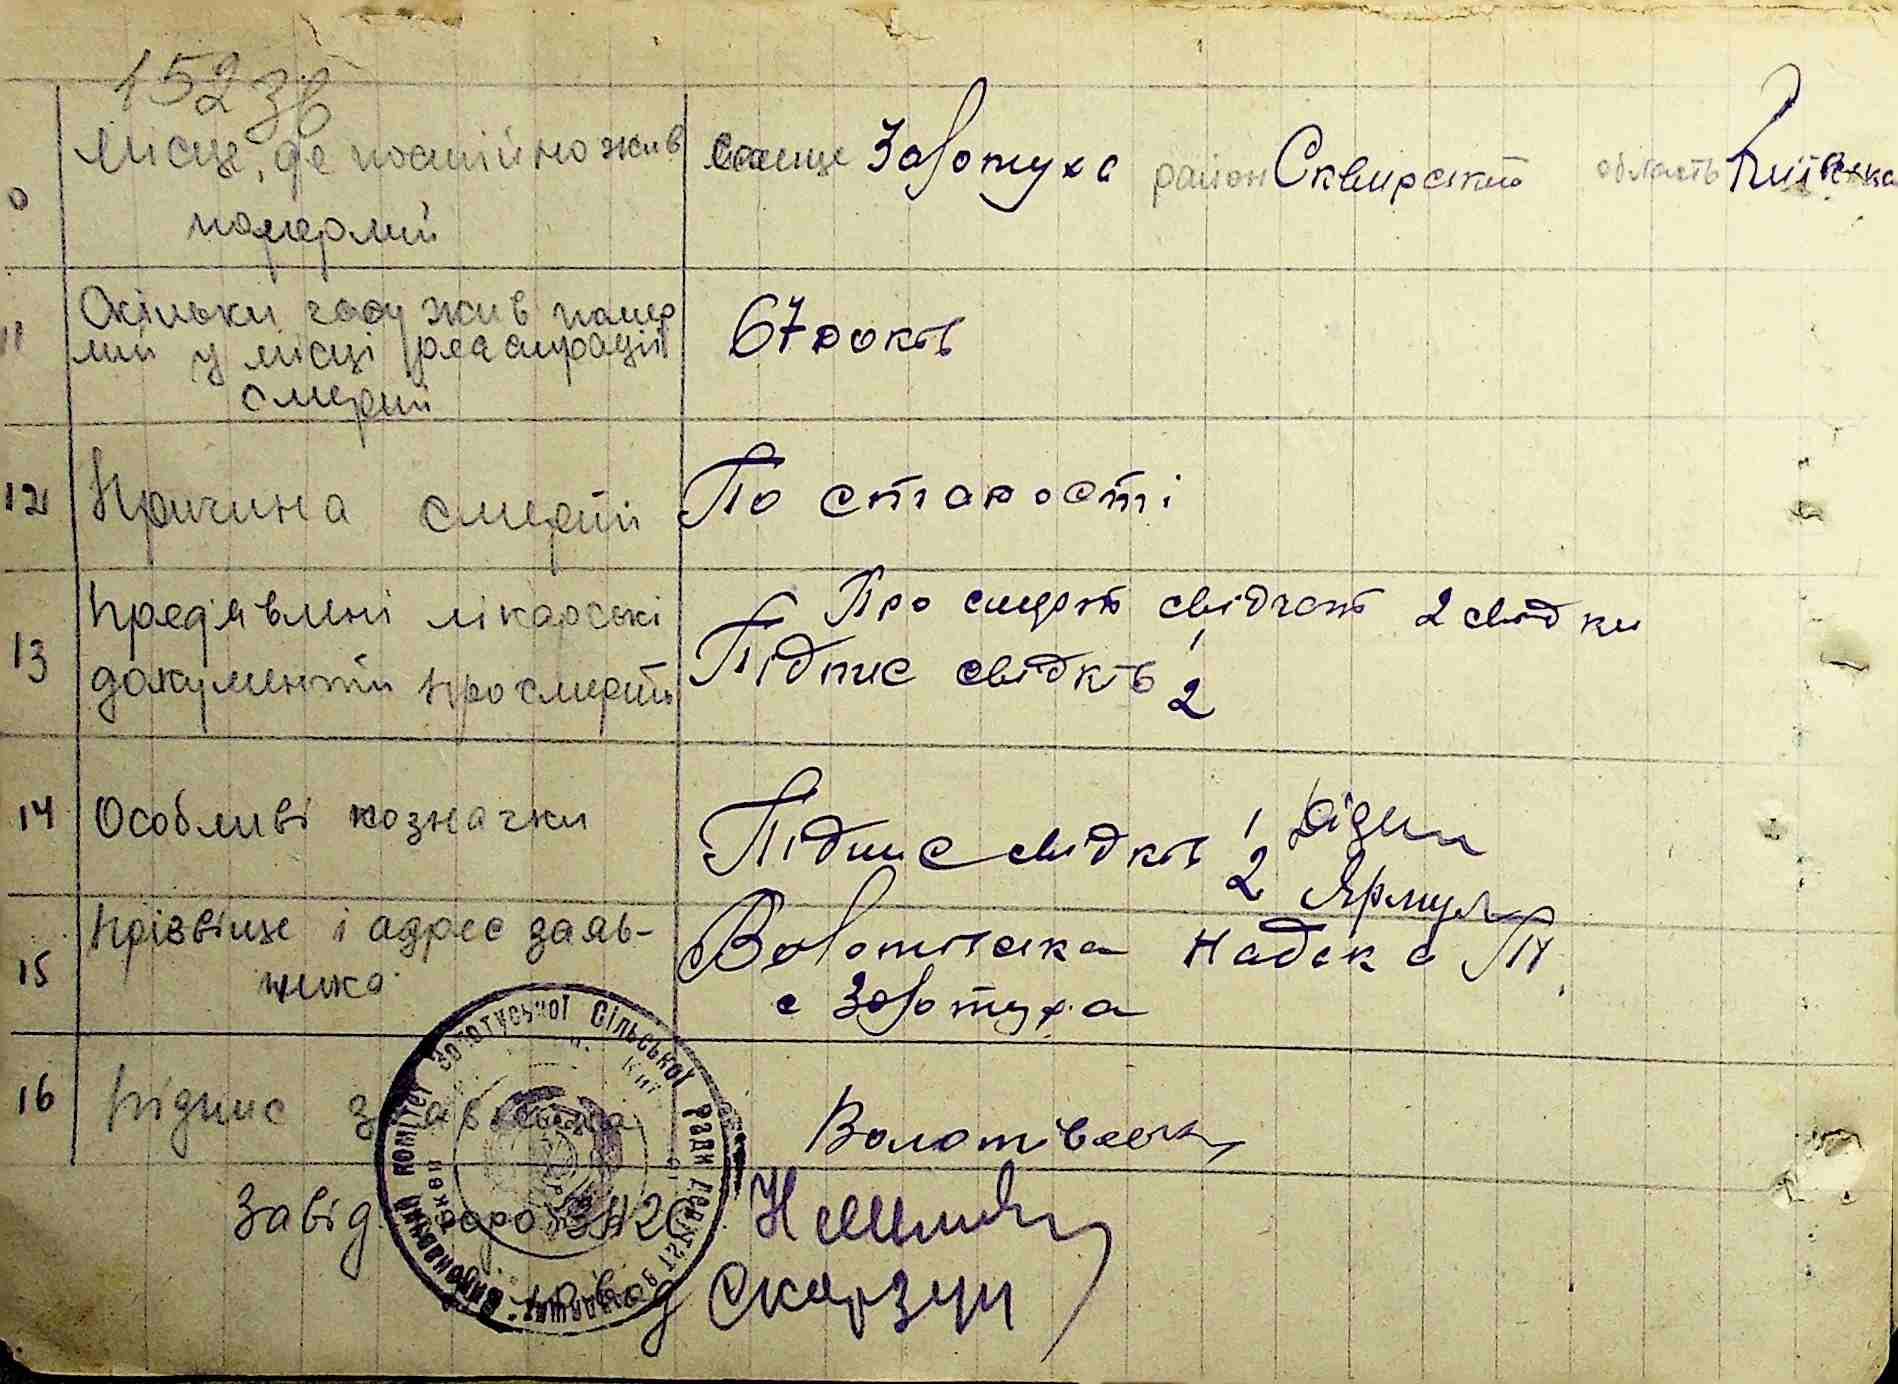 152 зв
Місце, де постійно жив
померлий
селище Золотуха район Сквирский область Київска
11 Скільки часу жив помер
лий у місці реєстрації
смерти
67 років
12 Причина смерти
По старості
13 Предявлені лікарські
документи про смерть
Про смерть свідчать 2 свідки
Підпис свідків 1
2
14 Особливі позначки
Підпис свідків 1
2
15 Прізвище і адрес заяв-
ника
Волотівска Надека П
с Золотуха
16 Підпис заявника
Волотівська
Завід бюро ЗАГС
Діловод
Виконавчий комітет Золотуської Сільської Ради депутатів трудящих